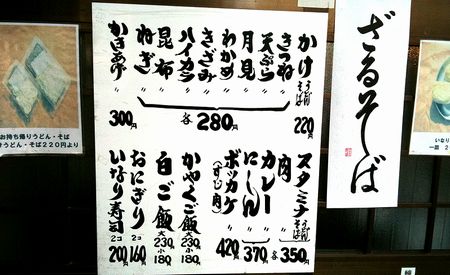 ざるそば
かけ うどん そば 220円
きつね 〃
天ぷら 〃
月見 〃
わかめ 〃
きざみ 〃
ハイカラ 〃
昆布 〃
ねぎ 〃
各280円
かきあげ 〃 300円
スタミナ うどん そば
肉 〃
各350円
カレー 〃
にしん 〃
370円
ボッカケ 〃
(すじ肉)
420円
かやくご飯 大230円 小180円
白ご飯 大230 小180
おにぎり 2コ 160円
いなり寿司 2コ 200円
お持ち帰りうどん・そば
うどん・そば220円より
いなり
一皿 2